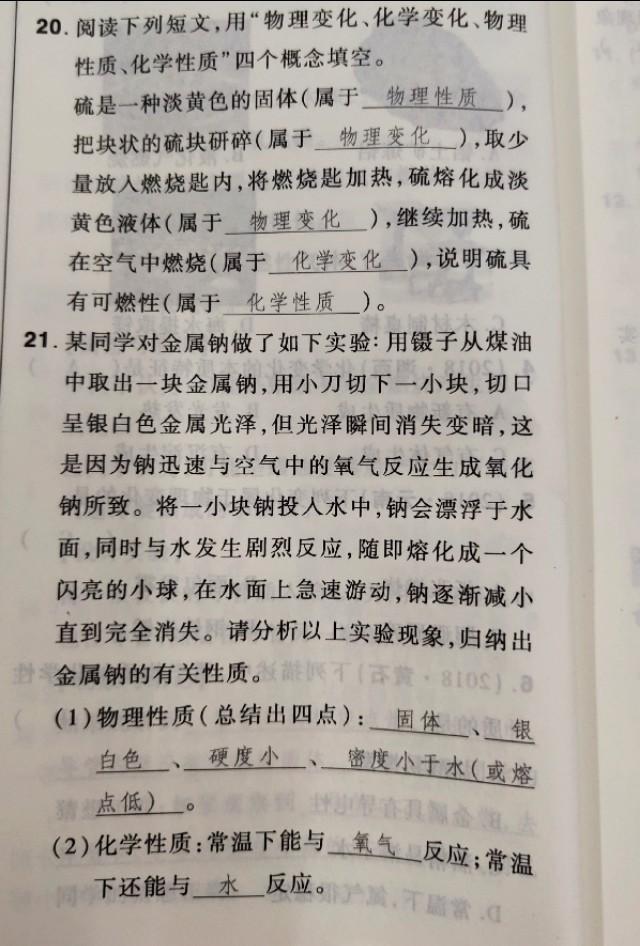 20. 阅读下列短文,用“物理变化、化学变化、物理
性质、化学性质”四个概念填空。
硫是一种淡黄色的固体(属于 物理性质 ),
把块状的硫块研碎(属于 物理变化 ),取少
量放入燃烧匙内,将燃烧匙加热,硫熔化成淡
黄色液体(属于 物理变化 ),继续加热,硫
在空气中燃烧(属于 化学变化 ),说明硫具
有可燃性(属于 化学性质 )。
21. 某同学对金属钠做了如下实验:用镊子从煤油
中取出一块金属钠,用小刀切下一小块,切口
呈银白色金属光泽,但光泽瞬间消失变暗,这
是因为钠迅速与空气中的氧气反应生成氧化
钠所致。将一小块钠投入水中,钠会漂浮于水
面,同时与水发生剧烈反应,随即熔化成一个
闪亮的小球,在水面上急速游动,钠逐渐减小
直到完全消失。请分析以上实验现象,归纳出
金属钠的有关性质。
(1)物理性质(总结出四点): 固体 、 银
白色 、 硬度小 、 密度小于水(或熔
点低) 。
(2)化学性质:常温下能与 氧气 反应;常温
下还能与 水 反应。